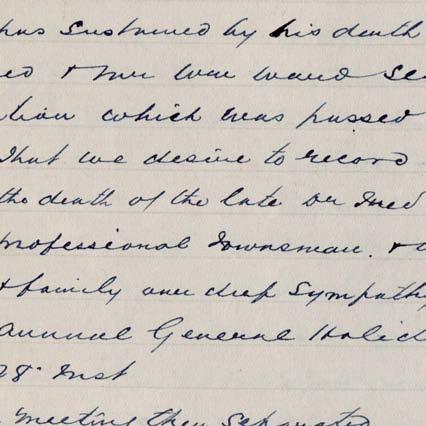 has sustained by his death
ed & Mr Wm Ward Se
tion which was passed
That we desire to record
the death of the late Dr Fred
professional Townsman. &
& family our deep sympathy
Annual General Holid
28th Inst
meeting then separated